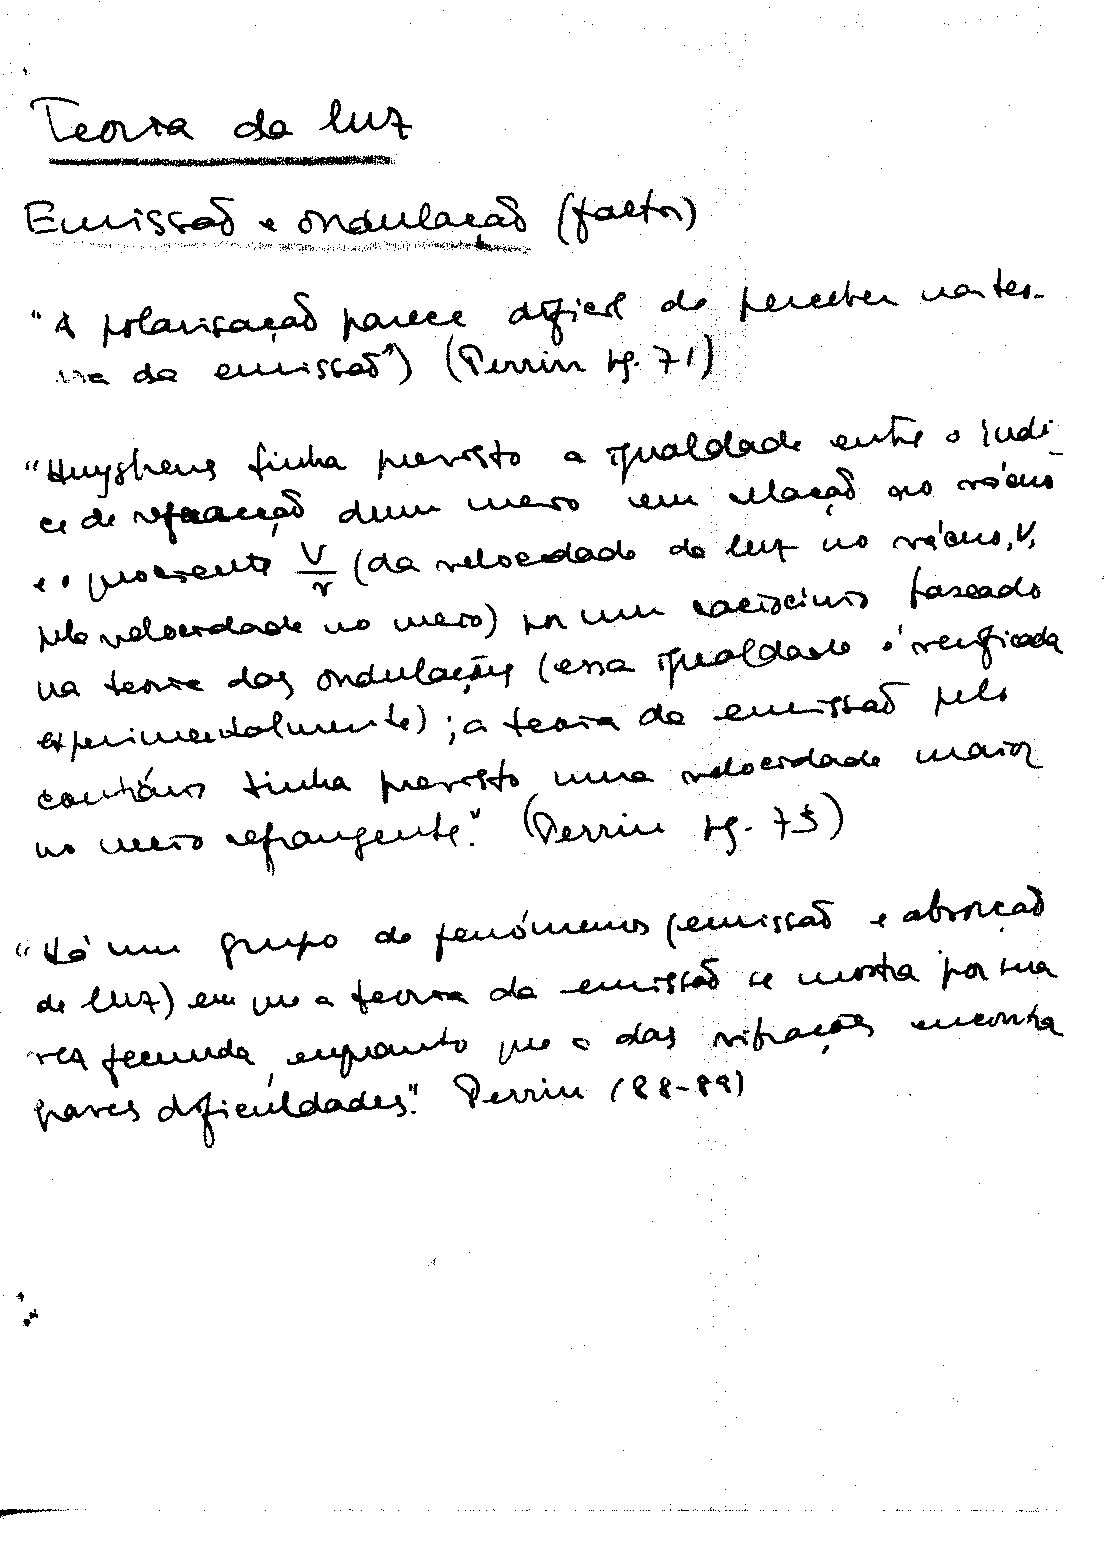 Teoria da luz
Emissão e ondulação (factos)
"A polarisação parece dificil de perceber na teo-
ria da emissão") (Perrin pg. 71)
"Huyghens tinha previsto a igualdade entre o indi-
ce de refracção dum meio em relação ao vácuo
e o quociente V/v (da velocidade da luz no vácuo, V,
pela velocidade no meio) por um raciocinio baseado
na teoria das ondulações (essa igualdade é verificada
experimentalmente); a teoria da emissão pelo
contrário tinha previsto uma velocidade maior
no meio refrangente." (Perrin pg. 73)
"Há um grupo de fenómenos (emissão e absorção
de luz) em que a teoria da emissão se mostra por sua
vez fecunda, enquanto que a das vibrações encontra
graves dificuldades." Perrin (88-89)